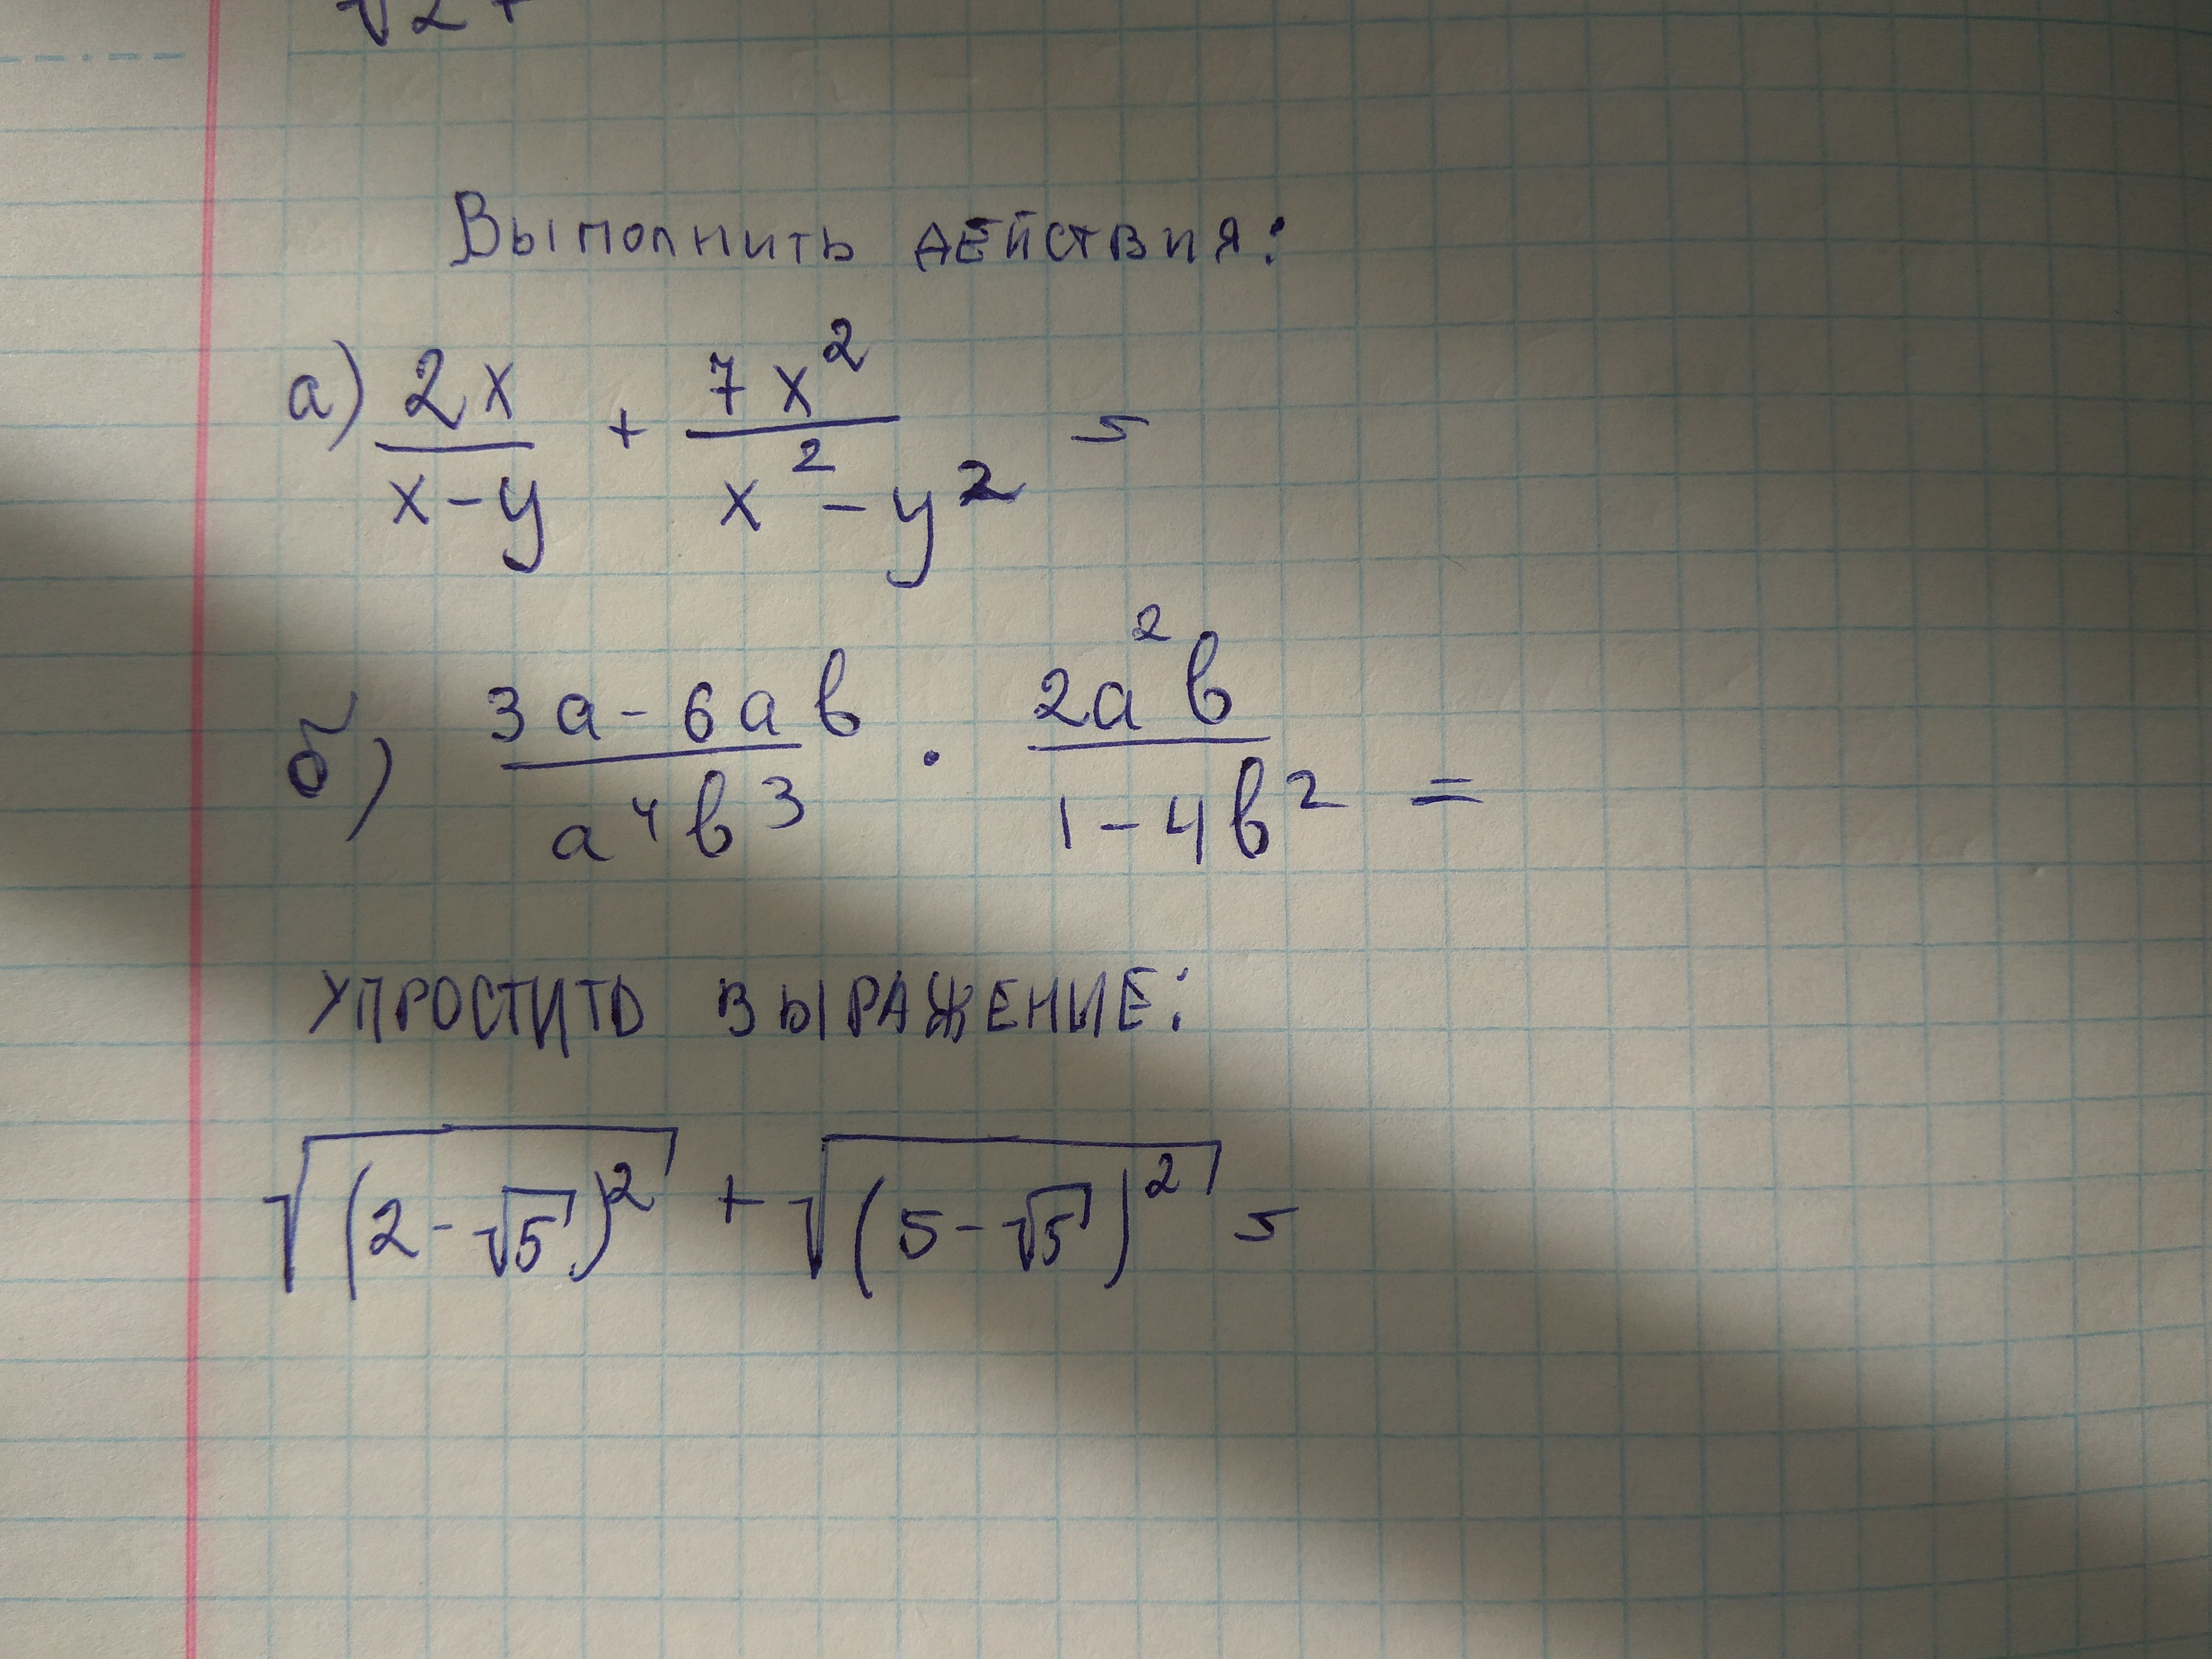 √2+
Выполнить действия:
а) 2x/(x-y) + 7x²/(x²-y²) =
б) (3a-6ab)/(a⁴b³) · 2a²b/(1-4b²) =
УПРОСТИТЬ ВЫРАЖЕНИЕ:
√((2-√5)²) + √((5-√5)²) =